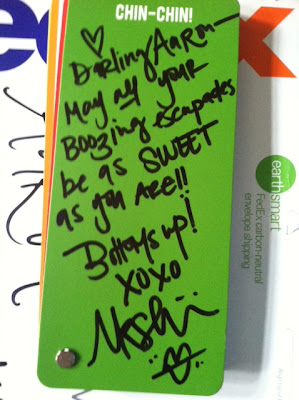 FedEx
CHIN-CHIN!
Darling Aaron—
May all your
Boozing escapades
be as SWEET
as you ARE!!
Bottoms up!
XOXO
earthsmart
FedEx carbon-neutral
envelope shipping